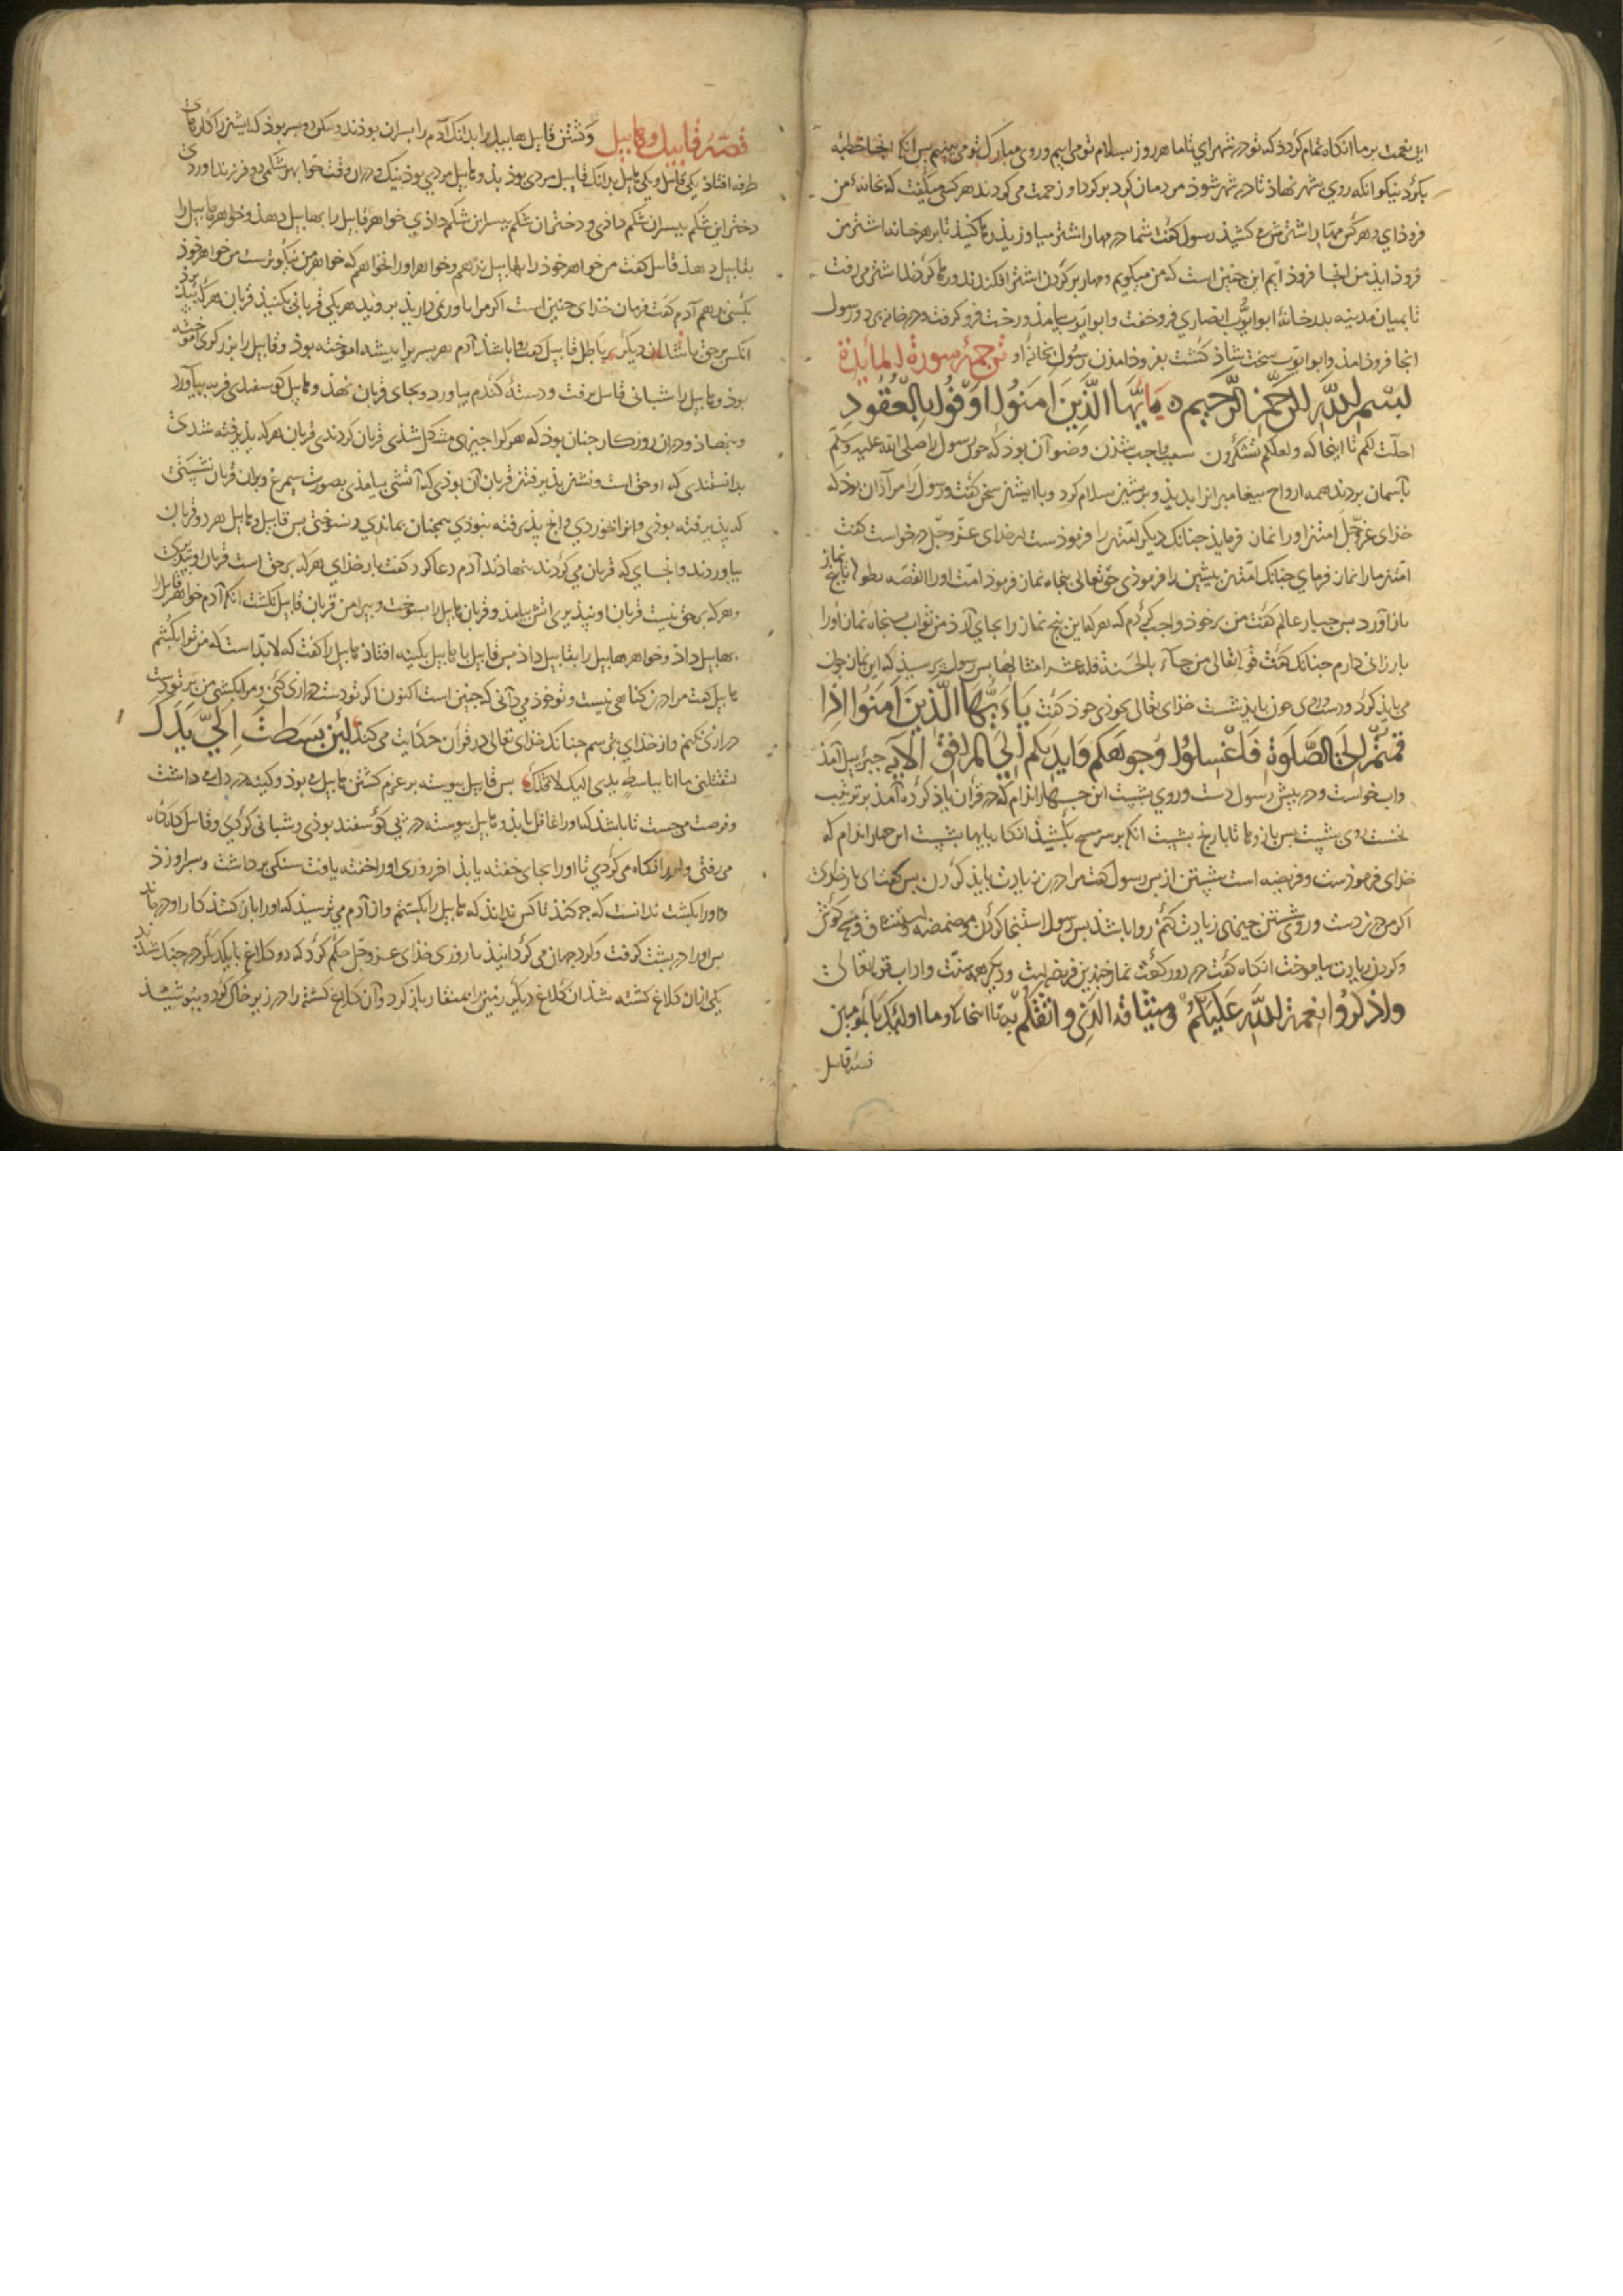 این نعمت بر ما انکاه تمام کردد که تو در شهر ای تا ما هر روز بسلام تو می اییم و روی مبارک تو می بینیم بس انکا انجا خطبه
بکرد نیکو انکه روی بشهر نهاذ تا در شهر شوذ مردمان کرد بر کرد او زحمت می کردند هر کسی میکفت که بخانهٔ من
فروذ ای و هر کس مهار اشترش می کشیذ رسول کفت شما مهار اشتر میاوزیذ رها کنیذ تا بر هر خانه اشتر من
فروذ ایذ من انجا فروذ ایم این چنین است که من میکویم و مهار بر کردن اشتر افکندند و رها کردند اشتر می رفت
تا بمیان مدینه بدر خانهٔ ابو ایوب انصاری فرو خفت و ابو ایوب بیامذ و رخت فرو کرفت و در خانه برد و رسول
انجا فروذ امذ و ابو ایوب سخت شاذ کشت بفروذ امذن رسول بخانهٔ او ترجمهٔ سورة المائدة
بسم الله الرحمن الرحیم یا أیها الذین امنوا اوفوا بالعقود
احلت لکم تا اینجا که ولعلکم تشکرون سبب واجب شذن وضو آن بوذ که چون رسول را صلی الله علیه وسلم
بآسمان بردند همه ارواح بیغامبرانرا بدیذ و بریشین سلام کرد و با ایشین سخن کفت و رسول را مراد آن بوذ که
خذای عزوجل امتن او را نماز فرمایذ چنانک دیکر امتنرا فرموذست از خذای عزوجل درخواست کفت
امتن مارا نماز فرمای چنانک امتن بیشین را فرموذی حق تعالی بنجاه نماز فرموذ امت او را القصه بطولها تا بنج نماز
باز آورد بس جبار عالم کفت من بر خوذ واجب کردم که هر که این بنج نماز را بجای آرد من ثواب بنجاه نماز او را
بارزانی دارم چنانک کفت قوله تعالی من جاء بالحسنة فله عشر امثالها بس رسول بپرسیذ که این نماز چون
می بایذ کرد و دست و روی چون بایذ شست خذای تعالی بخوذی خوذ کفت یا أیها الذین آمنوا اذا
قمتم الی الصلوة فاغسلوا وجوهکم وایدیکم الی المرافق الآیه جبرییل آمذ
واب خواست و در بیش رسول دست و روی بشست این چهار اندام که در قرآن یاذ کرده آمذ بر ترتیب
نخست روی بشست بس بازوها تا بآرنج بشست انکه بر سر مسح بکشیذ انکاه بایها بشست این چهار اندام که
خذای فرموذست و فریضه است شستن از بس رسول کفت مرا در زیادت بایذ کردن بس کفت ای بار خذای
اکر من در دست و روی شستن چیزی زیادت کنم روا باشذ بس رسول استنجا کردن و مضمضه و استنشاق و مسح کوش
و کردن زیادت بیاموخت انکاه کفت در دو رکعت نماز چندین فریضه است و دیکر همه سنت و اداب قوله تعالی
واذکروا نعمة الله علیکم ومیثاقه الذی واثقکم به تا انجا که وما اولئک بالمومنین
قصه قابیل
قصهٔ قابیل و هابیل وکشتن قابیل هابیل را بدانک آدم را بسران بوذند ولکن دو بسر بوذ که ایشین را کارهای
طرفه افتاذ یکی قابیل و یکی هابیل بدانک قابیل مردی بوذ بذ و هابیل مردی بوذ نیک و در ان وقت حوا بهر شکمی دو فرزند اوردی
دختر این شکم ببسر ان شکم داذی و دختر ان شکم ببسر این شکم داذی خواهر قابیل را بهابیل دهذ و خواهر هابیل را
بقابیل دهذ قابیل کفت من خواهر خوذ را بهابیل ندهم و خواهر او را نخواهم که خواهر من نیکوترست من خواهر خوذ
بکسی ندهم آدم کفت فرمان خذای چنین است اکر مرا باور نمی داریذ برویذ هر یکی قربانی بکنیذ قربان هر که بپذیرذ
انکس بر حق باشذ ان دیکر بر باطل قابیل کفت روا باشذ آدم هر بسر برا بیشه اموخته بوذ و قابیل را برزکری اموخته
بوذ و هابیل را شبانی قابیل برفت و دستهٔ کندم بیاورد و بجای قربان نهذ و هابیل کوسفندی فربه بیآورد
و بنهاذ و در ان روزکار چنان بوذ که هر کرا چیزی مشکل شذی قربان کردندی قربان هر که بذیرفته شدی
بدانستندی که او حق است و نشین بذیرفتن قربان آن بوذی که آتشی بیامذی بصورت سیمرغ و بران قربان نشستی
که بذیرفته بوذی و انرا بخوردی و انچ بذیرفته نبوذی همچنان بماندی و نسوختی بس قابیل و هابیل هر دو قربان
بیاوردند و انجای که قربان می کردند بنهاذند آدم دعا کرد کفت بار خذای هر که بر حق است قربان او بپذیری
و هر که بر حق نیست قربان او نپذیری اتش بیامذ و قربان هابیل را بسوخت و بیرامن قربان قابیل نکشت انکه آدم خواهر قابیل را
بهابیل داذ و خواهر هابیل را بقابیل داذ بس قابیل با هابیل بکینه افتاذ هابیل را کفت که لابد است که من ترا بکشم
هابیل کفت مرا در ین کناهی نیست و تو خوذ می دانی که چنین است اکنون اکر تو دست درازی کنی و مرا بکشی من بر تو دست
درازی نکنم و از خذای بترسم چنانک خذای تعالی در قرآن حکایت می کند لئن بسطت الی یدک
لتقتلنی ما انا بباسط یدی الیک لاقتلک بس قابیل بیوسته بر عزم کشتن هابیل می بوذ و کینه در دل می داشت
و فرصت می جست تا باشذ که او را غافل یابذ و هابیل بیوسته در بی کوسفند بوذی و شبانی کردی و قابیل کاه کاه
می رفتی و او را نکاه می کردی تا او را بجای خفته یابذ اخر روزی او را خفته یافت سنکی برداشت و بر سر او زذ
و او را بکشت ندانست که چه کنذ تا کس نداند که هابیل را بکشتم و از آدم می ترسیذ که او را باز کشذ کار او در ماند
بس او را در بشت کرفت و کرد جهان می کردانیذ تا روزی خذای عزوجل حکم کرد که دو کلاغ با یکدیکر در جنک شذند
یکی ازان کلاغ کشته شذ ان کلاغ دیکر زمین را بمنقار باز کرد و آن کلاغ کشته را در زیر خاک کرد و ببوشیذ